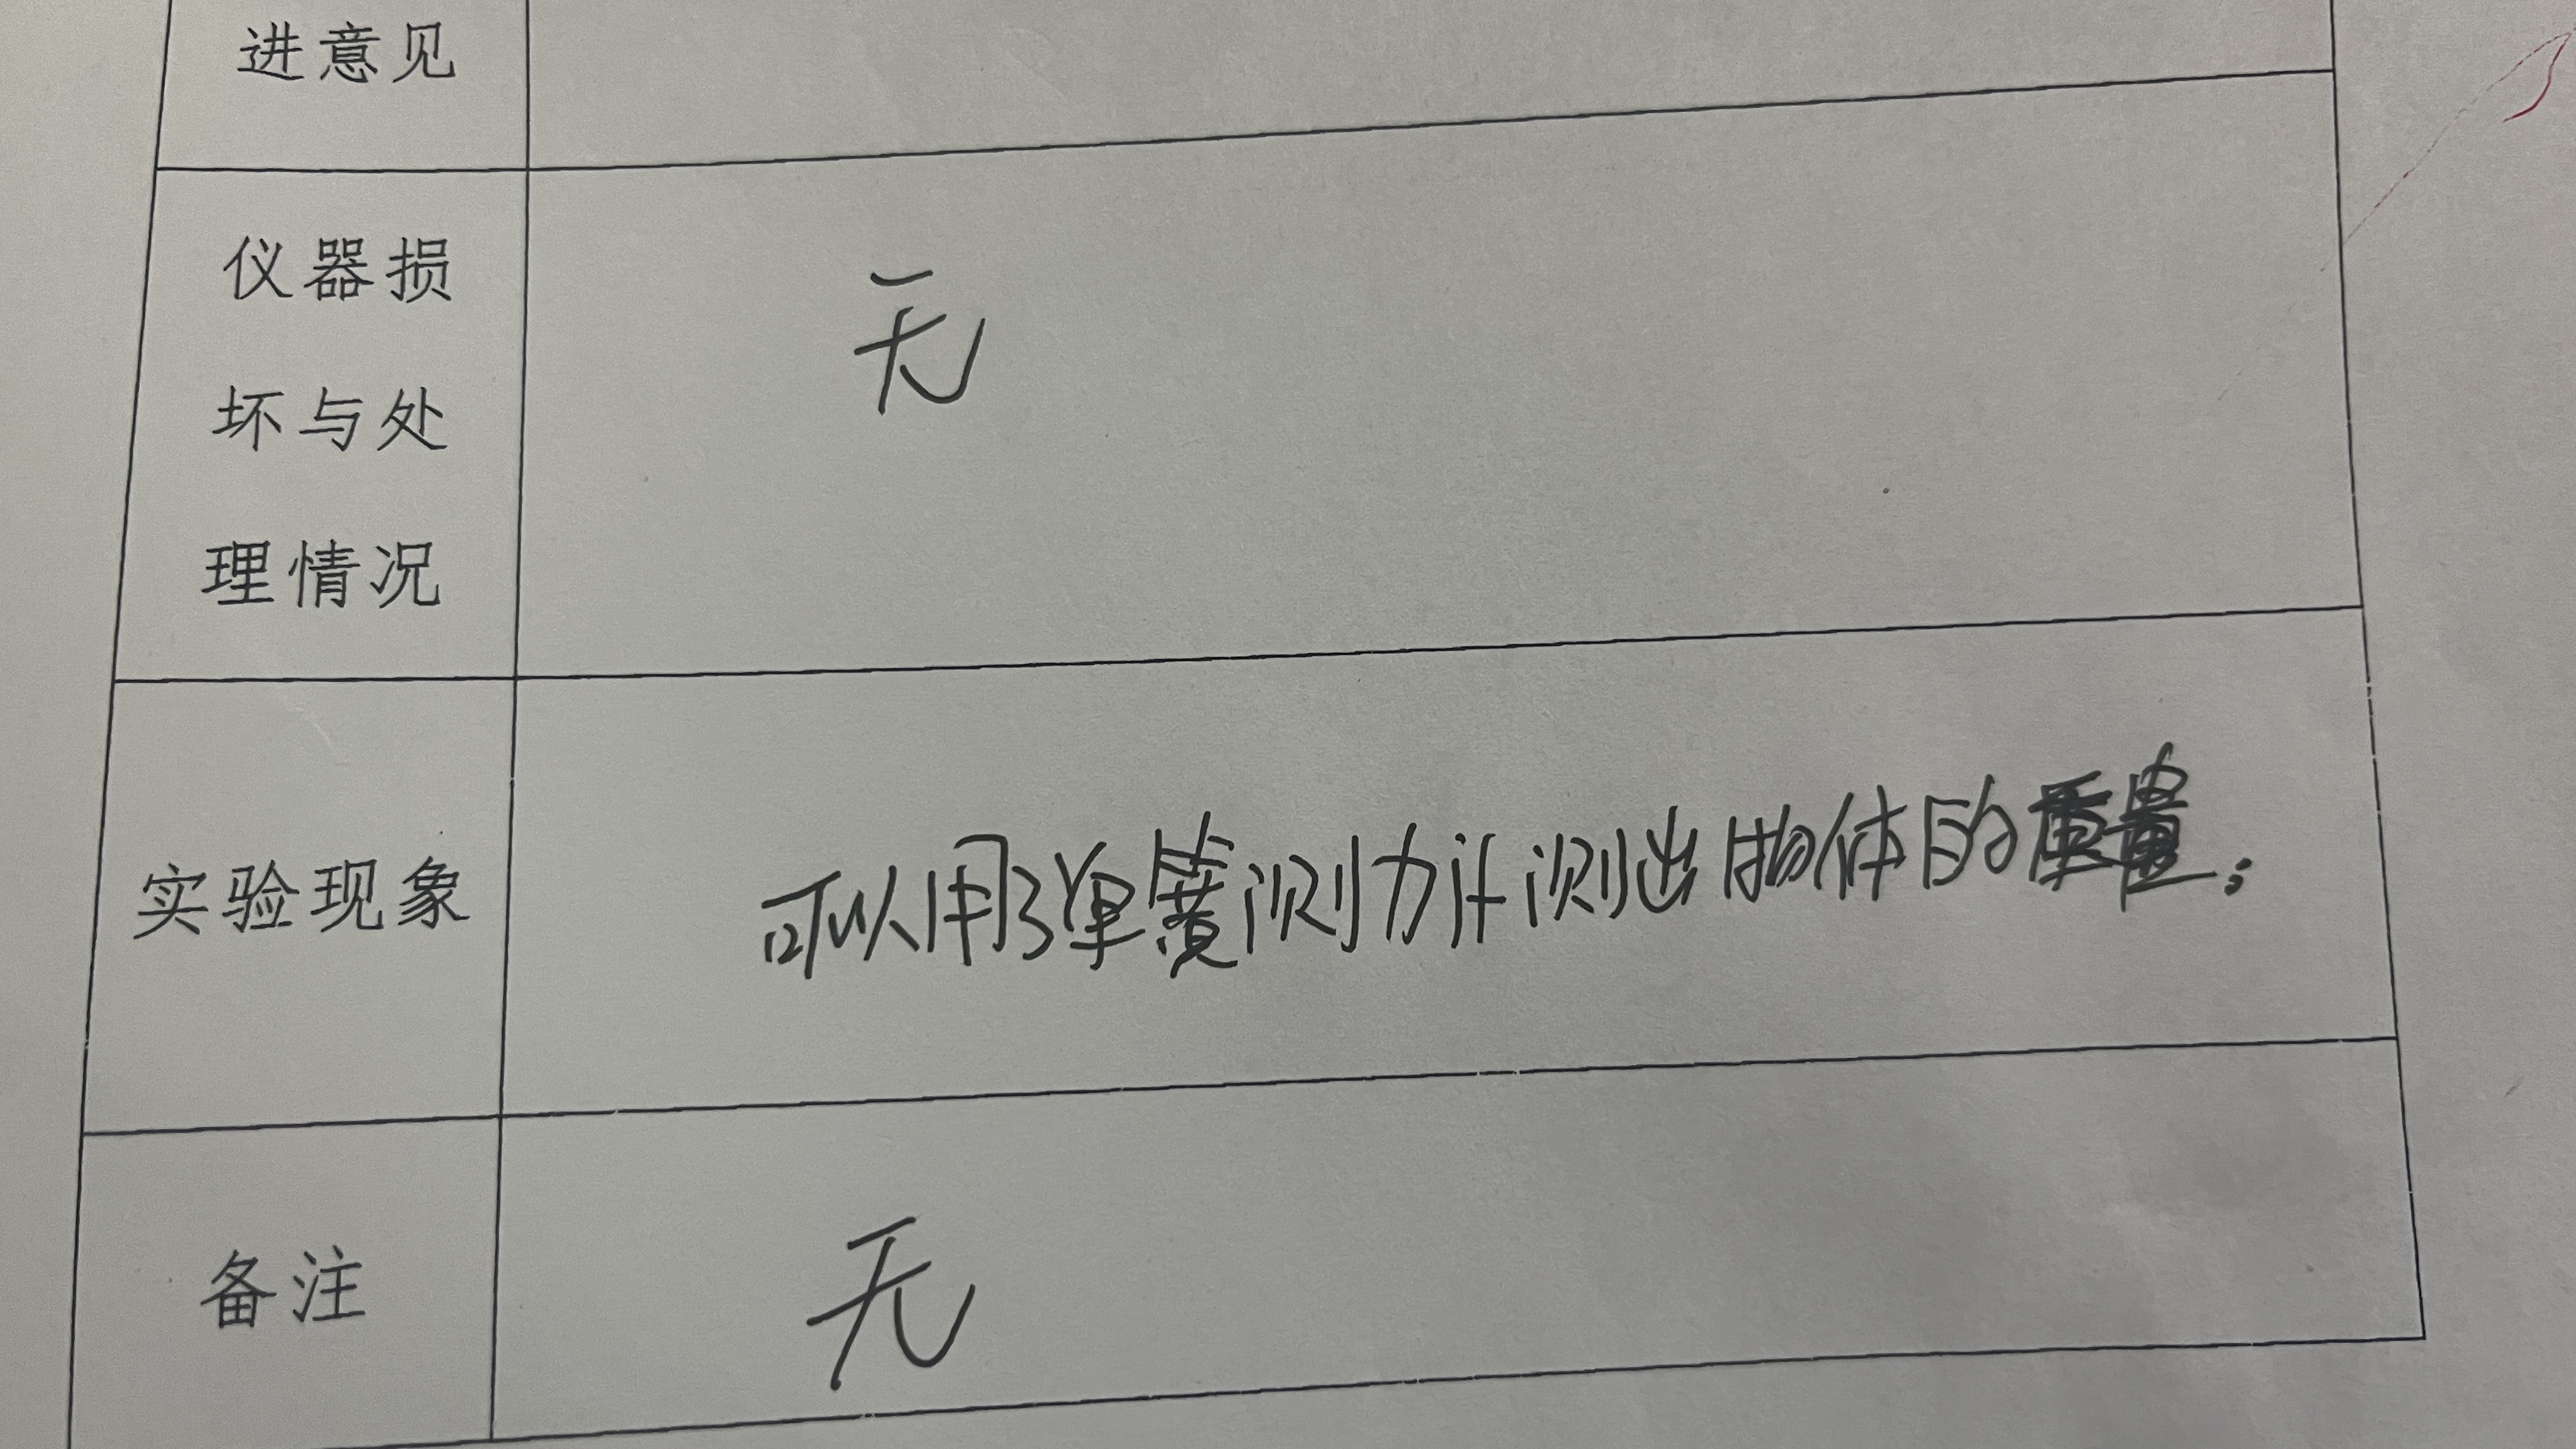 进意见
仪器损
坏与处
理情况
无
实验现象
可以用弹簧测力计测出物体的重量;
备注
无